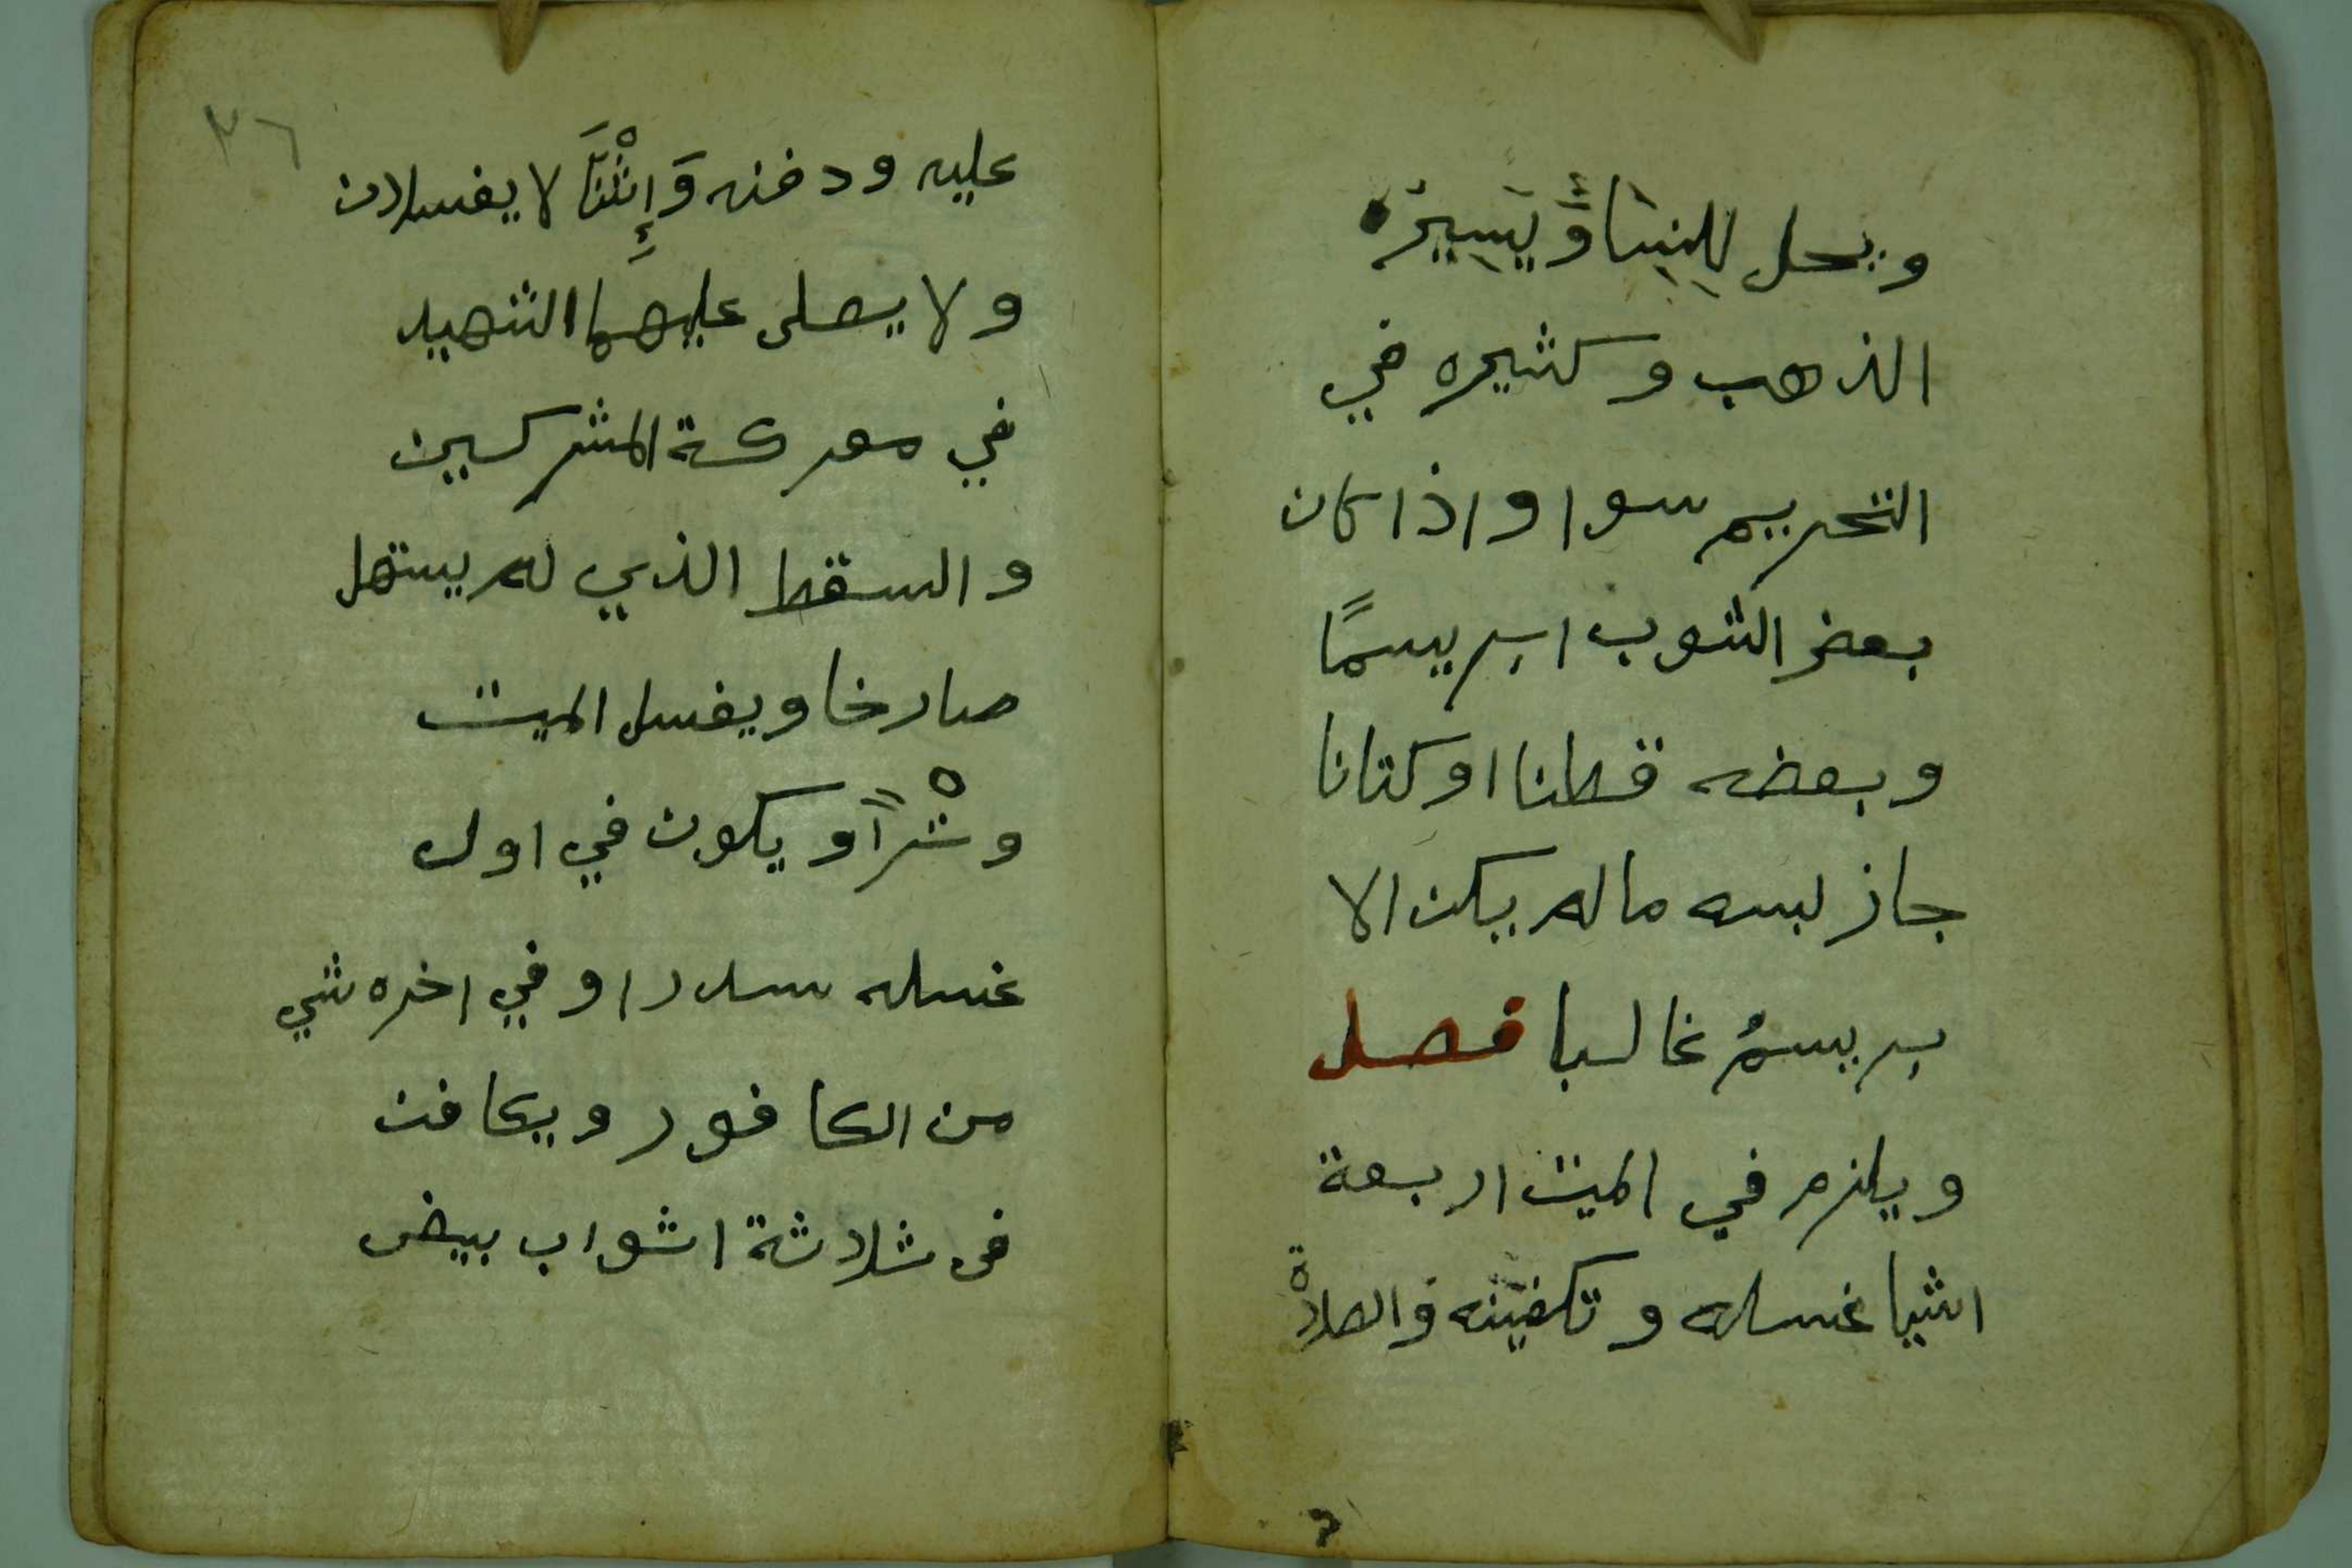 ويحل للنِسَاءَ وَيَسِيرُه
الذهب وكثيره في
التحريم سوا واذا كان
بعض الثوب ابريسمًا
وبعضه قطنا اوكتانا
جاز لبسه ماله يكن الا
بريسمُ غالبا فصل
ويلزم في الميت اربعة
اشيا غسله وتكفينه والصلاة
٣٦
عليه ودفنه وَإِثْنَا لا يغسلان
ولا يصلى عليهما الشهيد
في معركة المشركين
والسقط الذي لم يستهل
صارخا ويغسل الميت
وتْراً ويكون في اول
غسله سدرا وفي اخره شي
من الكافور ويكافن
في ثلاثة اثواب بيض